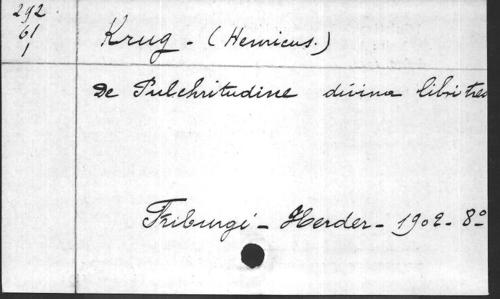 292
61
1
Krug - (Henricus.)
De Pulchritudine divina libri tres
Friburgi - Herder - 1902 - 8º